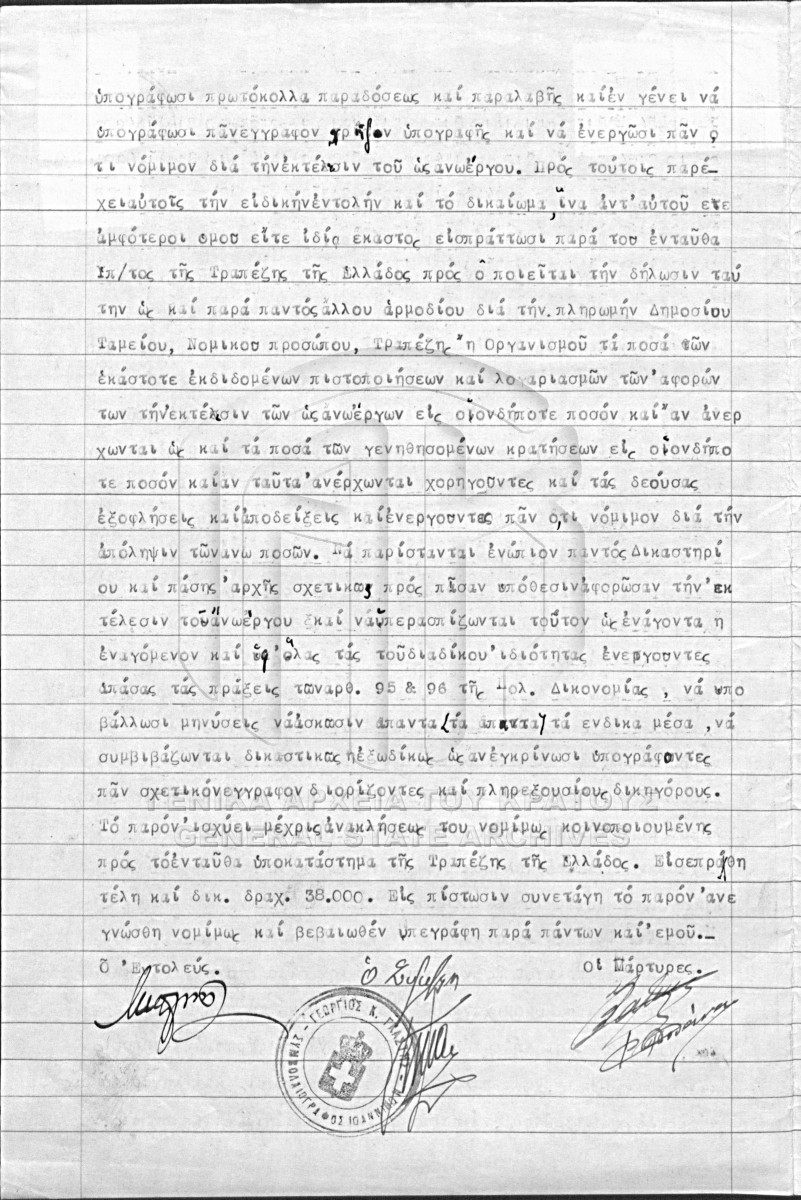 ὑπογράφωσι πρωτόκολλα παραδόσεως καί παραλαβῆς καίἐν γένει νά
ὑπογράφωσι πᾶνἔγγραφον χρῆζον ὑπογραφῆς καί νά ἐνεργῶσι πᾶν ὅ
τι νόμιμον διά τήνἐκτέλεσιν τοῦ ὡςἀνωἔργου. Πρός τούτοις παρέ-
χειαὐτοῖς τήν εἰδικήνἐντολήν καί τό δικαίωμα ἵνα ἀντ'αὐτοῦ εἴτε
ἀμφότεροι ὁμοῦ εἴτε ἰδίᾳ ἕκαστος εἰσπράττωσι παρά τοῦ ἐνταῦθα
Ὑπ/τος τῆς Τραπέζης τῆς Ἑλλάδος πρός ὅ ποιεῖται τήν δήλωσιν ταύ
την ὡς καί παρά παντόςἄλλου ἁρμοδίου διά τήν πληρωμήν Δημοσίου
Ταμείου, Νομικοῦ προσώπου, Τραπέζης ἤ Ὀργανισμοῦ τά ποσά τῶν
ἑκάστοτε ἐκδιδομένων πιστοποιήσεων καί λογαριασμῶν τῶν'ἀφορών
των τήνἐκτέλεσιν τῶν ὡςἀνωἔργων εἰς οἱονδήποτε ποσόν καί ἄν ἀνέρ
χωνται ὡς καί τά ποσά τῶν γενηθησομένων κρατήσεων εἰς οἱονδήπο
τε ποσόν καίἄν ταῦτα'ἀνέρχωνται χορηγοῦντες καί τάς δεούσας
ἐξοφλήσεις καίἀποδείξεις καίἐνεργοῦντες πᾶν ὅ,τι νόμιμον διά τήν
ἀπόληψιν τῶνἄνω ποσῶν. Νά παρίστανται ἐνώπιον παντός Δικαστηρί
ου καί πάσης ἀρχῆς σχετικῶς πρός πᾶσαν ὑπόθεσινἀφορῶσαν τήν'ἐκ
τέλεσιν τοῦἄνωἔργου καί νάὑπερασπίζωνται τοῦτον ὡς ἐνάγοντα ἤ
ἐναγόμενον καί ὑφ'ὅλας τάς τοῦδιαδίκου'ἰδιότητας ἐνεργοῦντες
ἁπάσας τάς πράξεις τῶνἀρθ. 95 & 96 τῆς Πολ. Δικονομίας , νά ὑπο
βάλλωσι μηνύσεις νάἀσκῶσιν ἅπαντα (τά ἅπαντα) τά ἔνδικα μέσα ,νά
συμβιβάζωνται δικαστικῶς ἤἐξωδίκως ὡςἄνἐγκρίνωσι ὑπογράφοντες
πᾶν σχετικόνἔγγραφον διορίζοντες καί πληρεξουσίους δικηγόρους.
Τό παρόν'ἰσχύει μέχριςἀνακλήσεως του νομίμως κοινοποιουμένης
πρός τόἐνταῦθα ὑποκατάστημα τῆς Τραπέζης τῆς Ἑλλάδος. Εἰσεπράχθη
τέλη καί δικ. δραχ. 38.000. Εἰς πίστωσιν συνετάγη τό παρόν'ἀνε
γνώσθη νομίμως καί βεβαιωθέν ὑπεγράφη παρά πάντων καί'ἐμοῦ.-
Ὁ Ἐντολεύς.
Ὁ Συμβ/φος
Οἱ Μάρτυρες.
ΓΕΝΙΚΑ ΑΡΧΕΙΑ ΤΟΥ ΚΡΑΤΟΥΣ
GENERAL STATE ARCHIVES